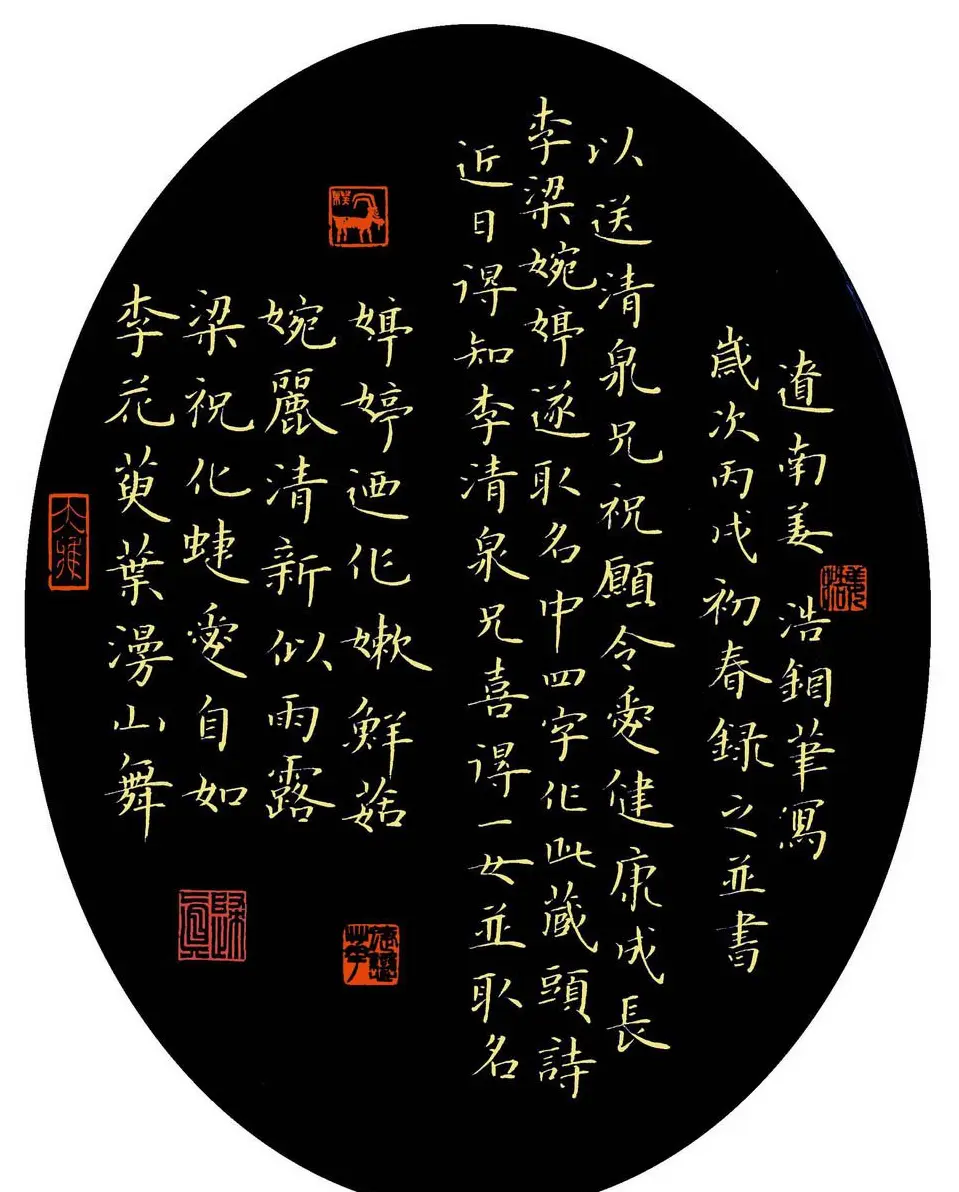 李花萸葉漫山舞
梁祝化蜨愛自如
婉麗清新似雨露
婷婷迺作嫩鮮菇
近日得知李清泉兄喜得一女並取名
李梁婉婷遂取名中四字作此藏頭詩
以送清泉兄祝願令愛健康成長
歲次丙戌初春録之並書
遼南姜浩鋼筆寫
大雅
姜浩